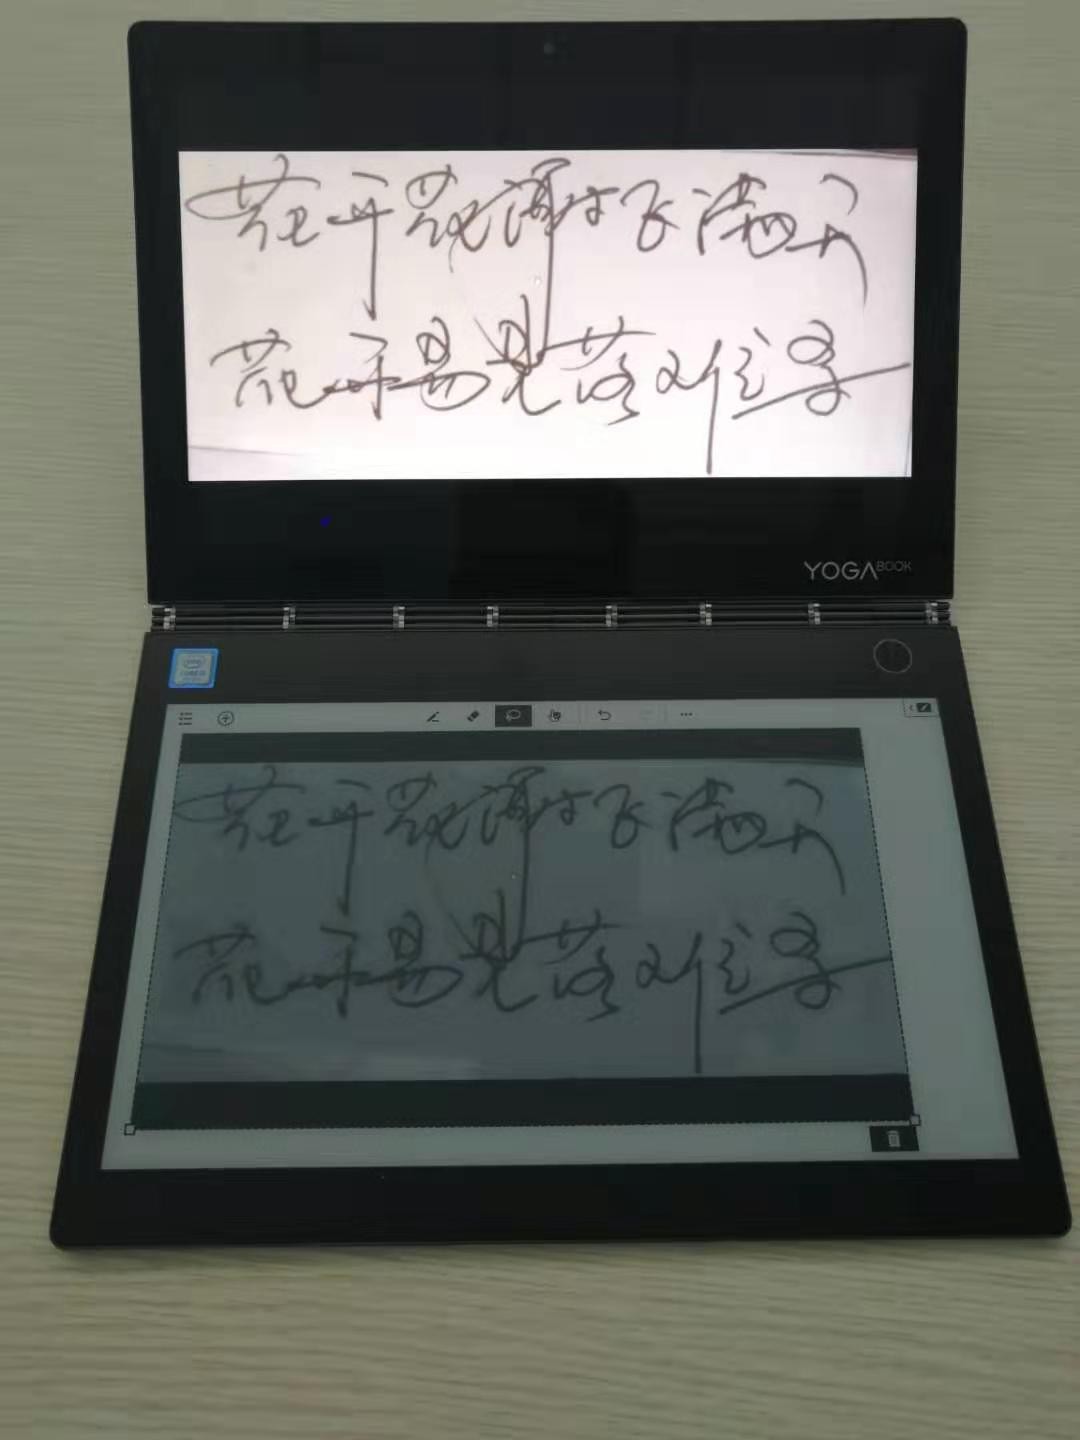 花开花谢飞满天
花开易见落难寻
YOGA BOOK
花开花谢飞满天
花开易见落难寻